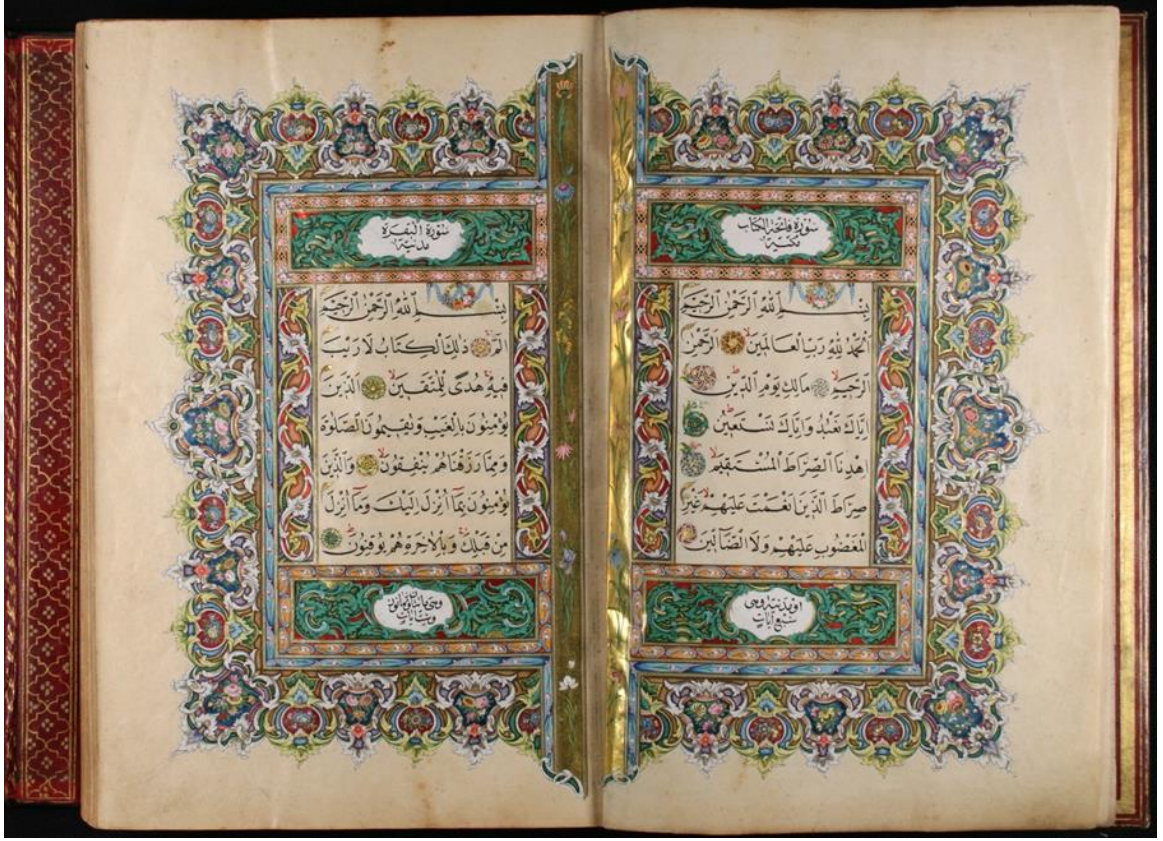 سُورَةُ فَاتِحَةِ الْكِتَابِ
مَكِّيَّةٌ
بِسْمِ اللّٰهِ الرَّحْمٰنِ الرَّحِيمِ
اَلْحَمْدُ لِلّٰهِ رَبِّ الْعَالَمِينَ الرَّحْمٰنِ
الرَّحِيمِ مَالِكِ يَوْمِ الدِّينِ
اِيَّاكَ نَعْبُدُ وَاِيَّاكَ نَسْتَعِينُ
اِهْدِنَا الصِّرَاطَ الْمُسْتَقِيمَ
صِرَاطَ الَّذِينَ اَنْعَمْتَ عَلَيْهِمْ غَيْرِ
الْمَغْضُوبِ عَلَيْهِمْ وَلَا الضَّٓالِّينَ
اَوْ مَدَنِيَّةٌ وَهِيَ
سَبْعُ اٰيَاتٍ
سُورَةُ الْبَقَرَةِ
مَدَنِيَّةٌ
بِسْمِ اللّٰهِ الرَّحْمٰنِ الرَّحِيمِ
الٓمٓ ذٰلِكَ الْكِتَابُ لَا رَيْبَ
فِيهِ هُدًى لِلْمُتَّقِينَ اَلَّذِينَ
يُؤْمِنُونَ بِالْغَيْبِ وَيُقِيمُونَ الصَّلٰوةَ
وَمِمَّا رَزَقْنَاهُمْ يُنْفِقُونَ وَالَّذِينَ
يُؤْمِنُونَ بِمَٓا اُنْزِلَ اِلَيْكَ وَمَٓا اُنْزِلَ
مِنْ قَبْلِكَ وَبِالْاٰخِرَةِ هُمْ يُوقِنُونَ
وَهِيَ مِائَتَانِ وَثَمَانُونَ
وَسِتُّ اٰيَاتٍ